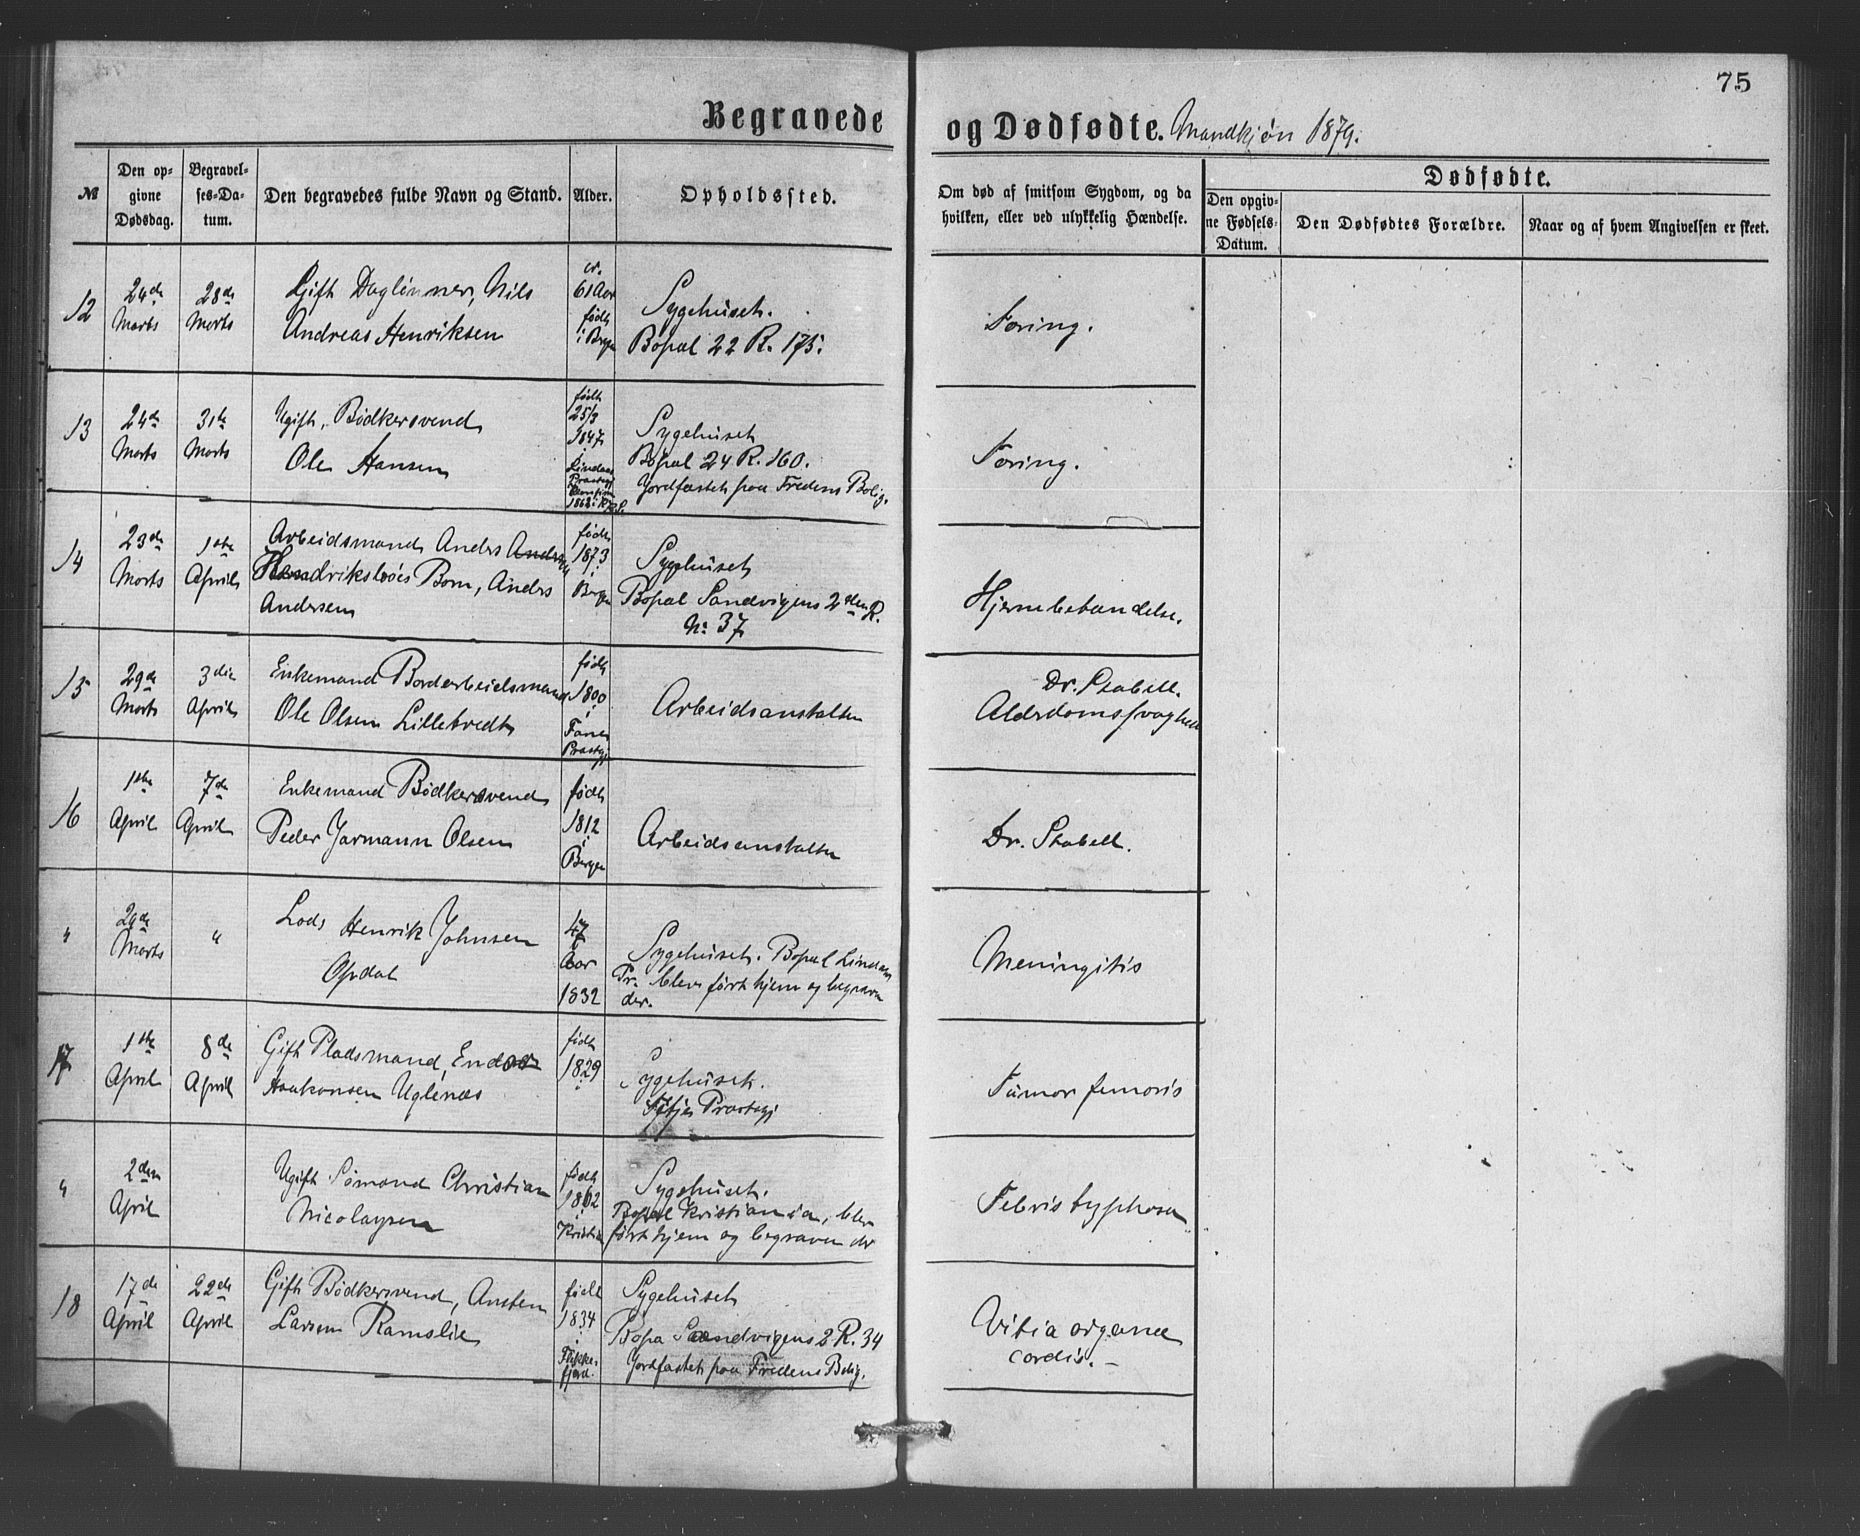 75
Begravede og Dødfødte. Mandkjøn 1879.
№
Den opgivne Dødsdag.
Begravelses-Datum.
Den begravedes fulde Navn og Stand.
Alder.
Opholdssted.
Om død af smitsom Sygdom, og da hvilken, eller ved ulykkelig Hændelse.
Dødfødte.
Den opgivne Fødsels-Datum.
Den Dødfødtes Forældre.
Naar og af hvem Angivelsen er skeet.
12
24de Marts
28de Marts
Gift Daglønner, Nils
Andreas Henriksen
cr. 61 Aar født i Bergen
Sygehuset.
Bopæl 22 R. 175.
Tæring.
13
24de Marts
31te Marts
Ugift, Bødkersvend
Ole Hansen
født 25/3 1847 i Lindaas Præstegj
Sygehuset
Bopæl 24 R. 160.
Jordfæstet paa Fredens Bolig.
Tæring.
14
23de Marts
1ste April
Arbeidsmand Anders
Barn, Anders
Andersen
født 1873 i Bergen
Sygehuset
Bopæl Sandvigens 2den R.
No 37
Hjernebetændelse.
15
29de Marts
3die April
Enkemand Bordarbeidsmand
Ole Olsen Lilletvedt
født 1800 i Fane Præstegj
Arbeidsanstalten
Dr. Stabell.
Alderdomssvaghed
16
1ste April
7de April
Enkemand Bødkersvend
Peder Jarmann Olsen
født 1812 i Bergen
Arbeidsanstalten
Dr. Stabell.
"
29de Marts
"
Lods Henrik Johnsen
Opdal
47 Aar 1832
Sygehuset. Bopæl Lindaas
Pr. blev ført hjem og begraven
der.
Meningitis
17
1ste April
8de April
Gift Pladsmand,
Haakonsen Uglenæs
født 1829
Sygehuset.
Præstegj
Tumor femoris
"
2den April
Ugift Sømand Christian
Nicolaysen
født 1862 i Kristia
Sygehuset.
Bopæl Kristiania, blev
ført hjem og begraven der
Febris typhosa
18
17de April
22de April
Gift Bødkersvend, Austen
Larsen Ramslie
født 1834 i Flekkefjord.
Sygehuset
Bopæl Sandvigens 2 R. 34
Jordfæstet paa Fredens Bolig.
Vitia organa
cordis. -